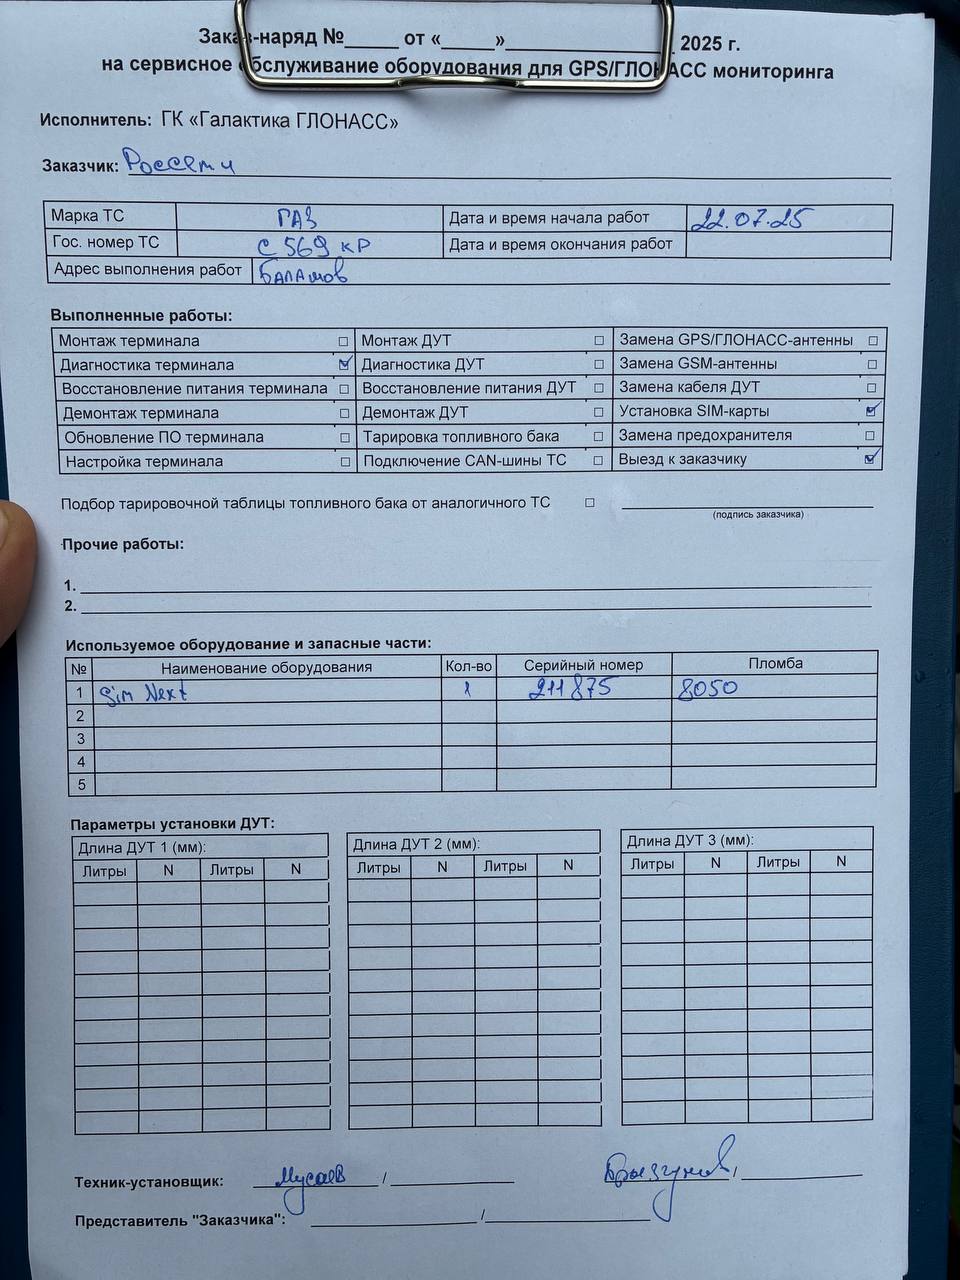 Заказ-наряд №_____ от «_____»_______________ 2025 г.
на сервисное обслуживание оборудования для GPS/ГЛОНАСС мониторинга
Исполнитель: ГК «Галактика ГЛОНАСС»
Заказчик: Россети
Марка ТС ГАЗ Дата и время начала работ 22.07.25
Гос. номер ТС С 569 КР Дата и время окончания работ
Адрес выполнения работ Балашов
Выполненные работы:
Монтаж терминала ☐ Монтаж ДУТ ☐ Замена GPS/ГЛОНАСС-антенны ☐
Диагностика терминала ☑ Диагностика ДУТ ☐ Замена GSM-антенны ☐
Восстановление питания терминала ☐ Восстановление питания ДУТ ☐ Замена кабеля ДУТ ☐
Демонтаж терминала ☐ Демонтаж ДУТ ☐ Установка SIM-карты ☑
Обновление ПО терминала ☐ Тарировка топливного бака ☐ Замена предохранителя ☐
Настройка терминала ☐ Подключение CAN-шины ТС ☐ Выезд к заказчику ☑
Подбор тарировочной таблицы топливного бака от аналогичного ТС ☐
(подпись заказчика)
Прочие работы:
1.
2.
Используемое оборудование и запасные части:
№ Наименование оборудования Кол-во Серийный номер Пломба
1 Sim Next 1 211875 8050
2
3
4
5
Параметры установки ДУТ:
Длина ДУТ 1 (мм): Длина ДУТ 2 (мм): Длина ДУТ 3 (мм):
Литры N Литры N Литры N Литры N Литры N Литры N
Техник-установщик: Мусаев / Брызгунов /
Представитель "Заказчика": /